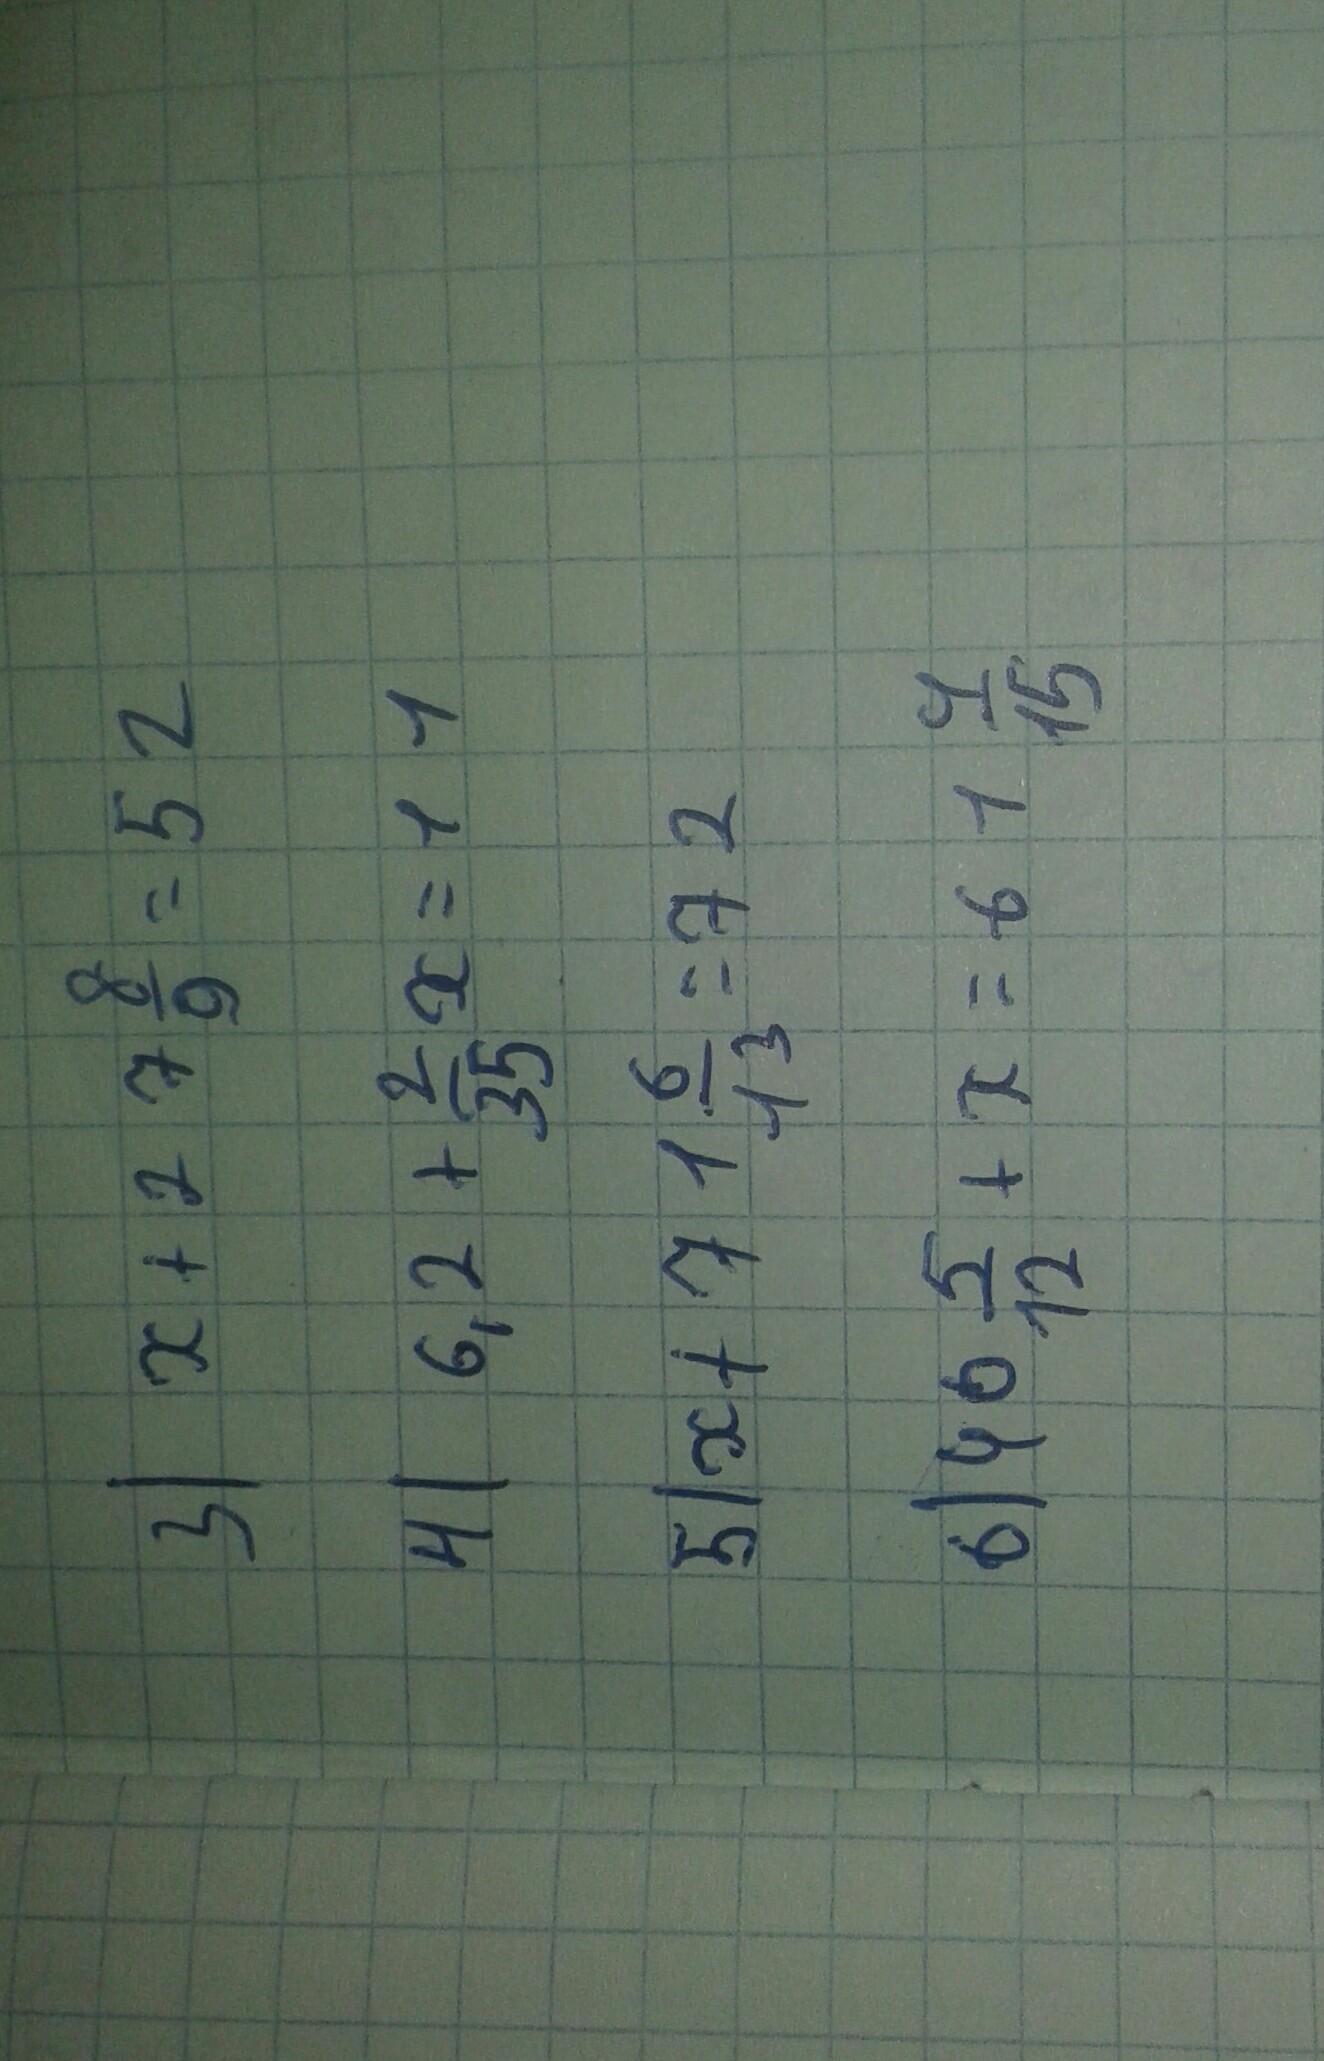 3) x + 27 8/9 = 52
4) 6,2 + 2/35 x = 11
5) x + 71 6/13 = 72
6) 46 5/12 + x = 61 4/15